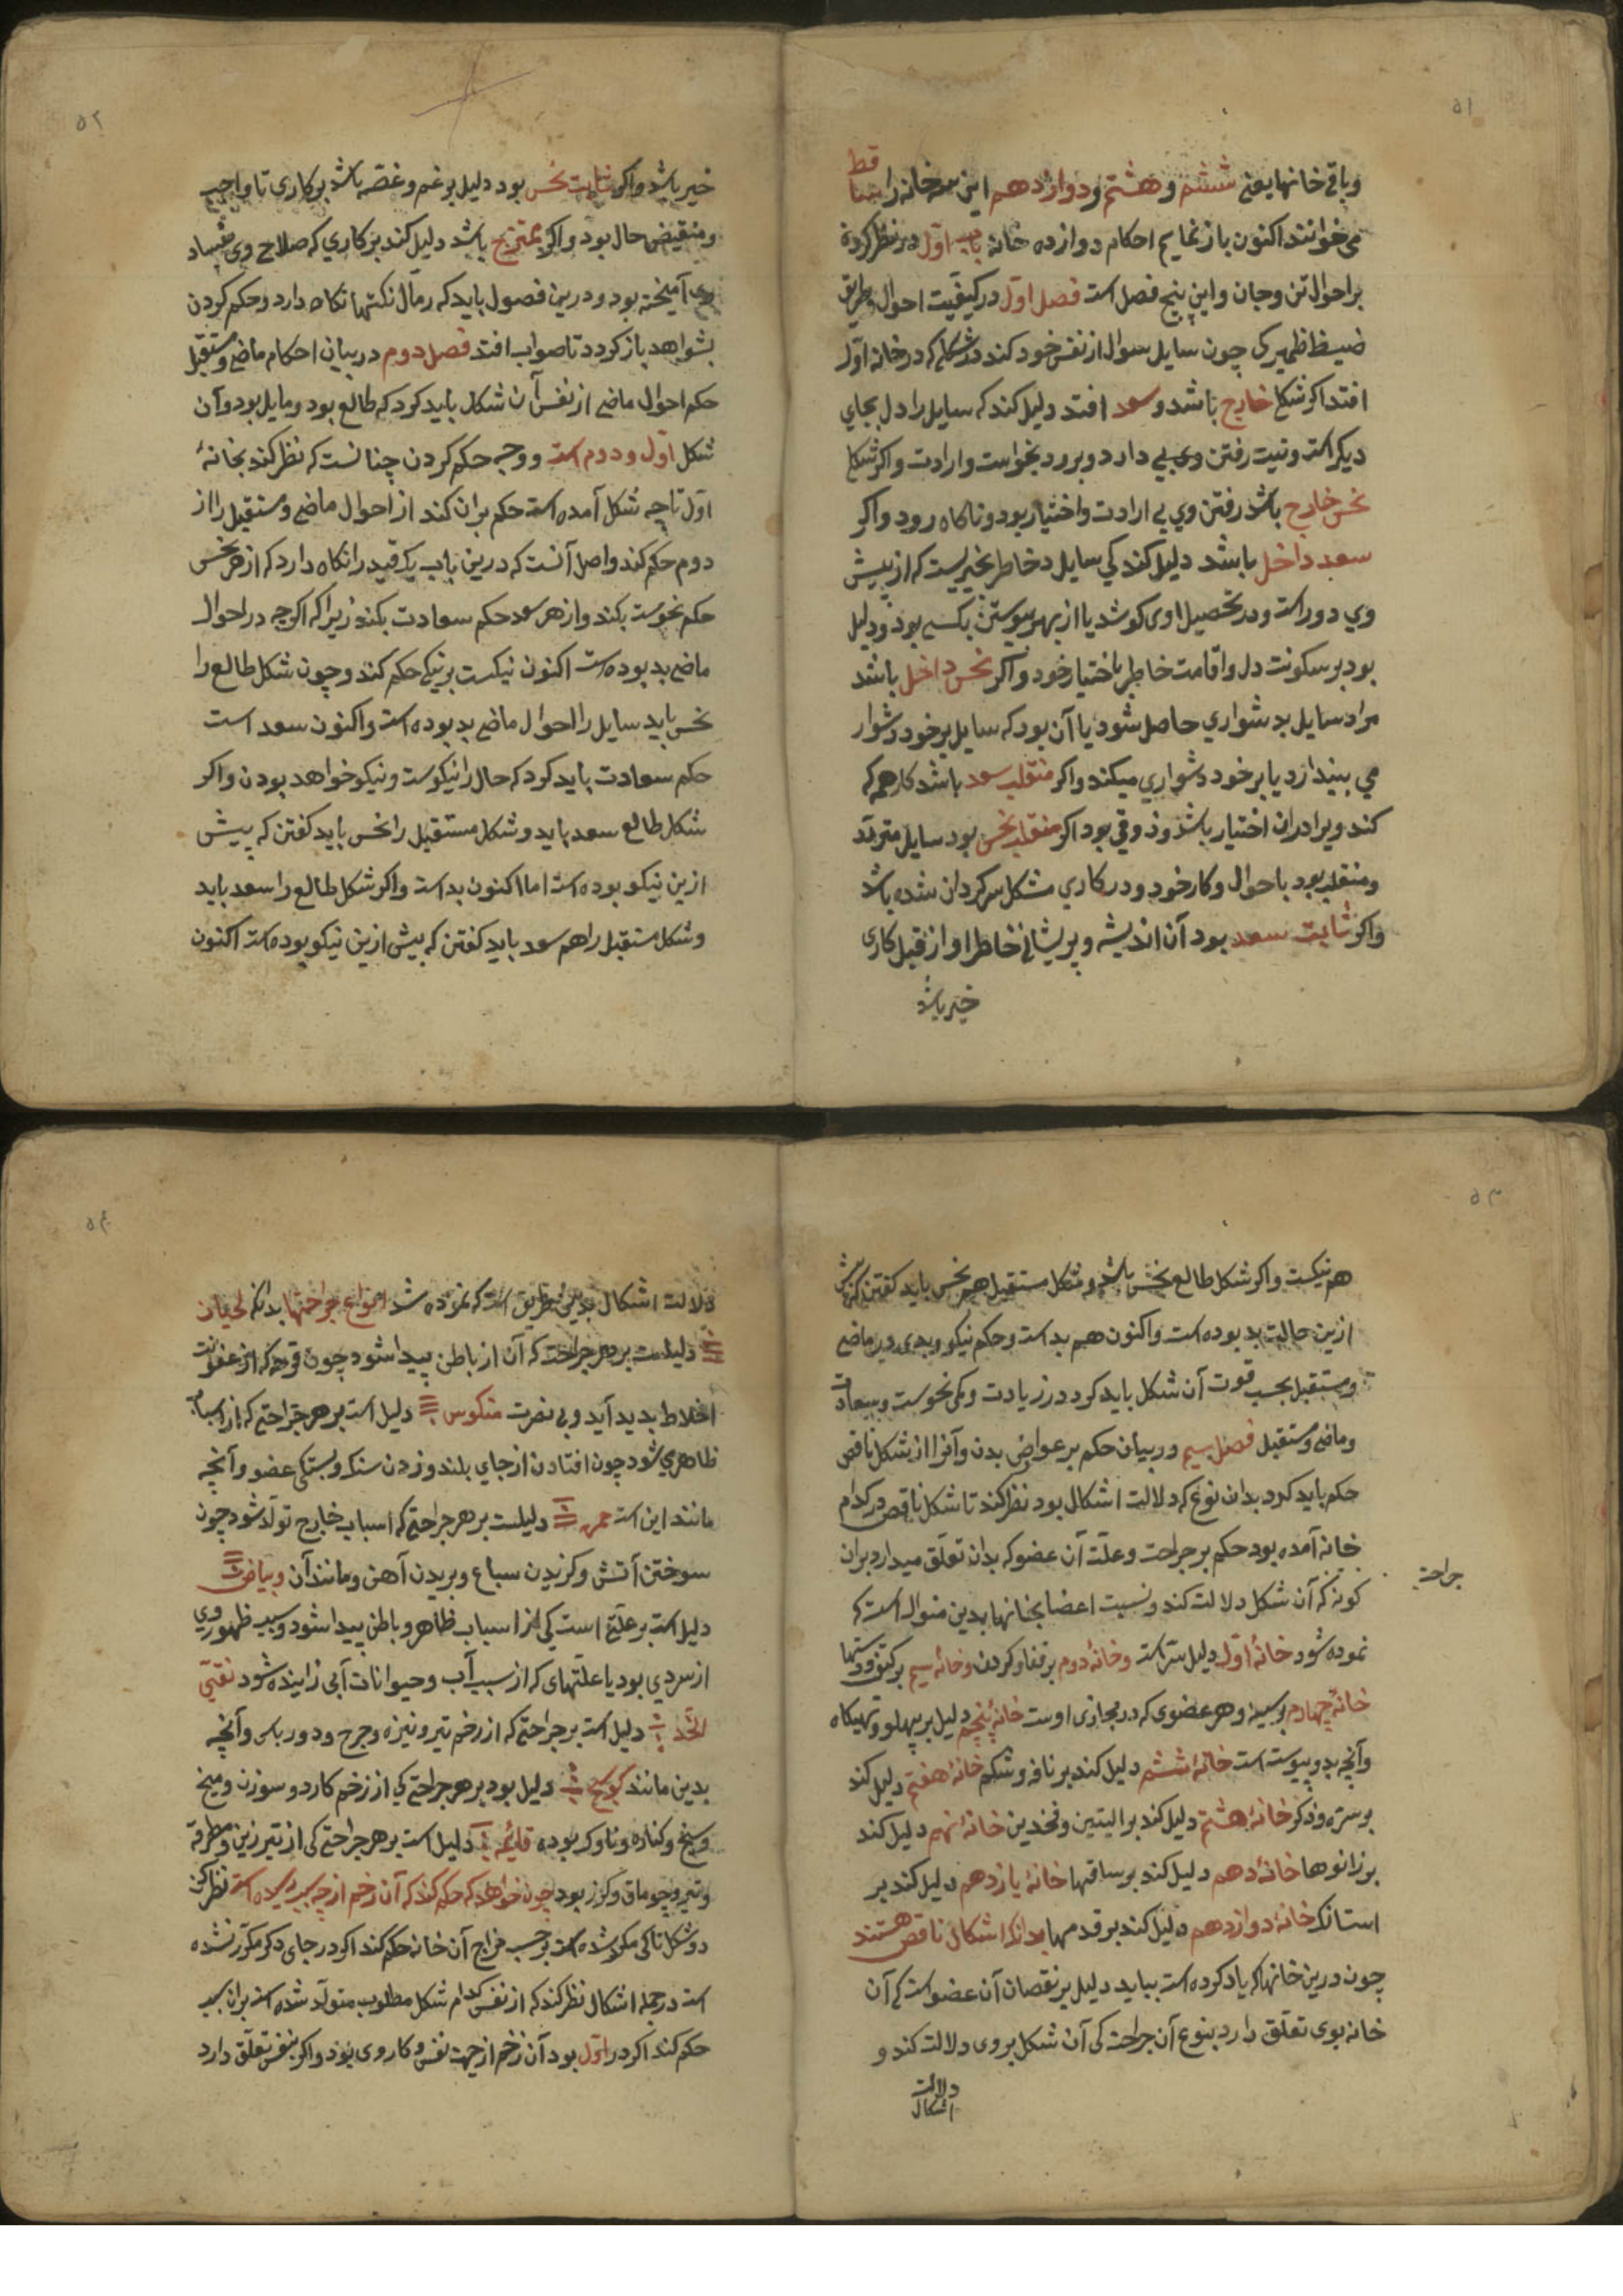 ۵۱
وباقی خانها یعنی ششم وهشتم ودوازدهم این سه خانه را ساقط
می‌خوانند اکنون بازنمایم احکام دوازده خانه باب اول در نظر کردن
بر احوال تن وجان واین پنج فصل است فصل اول در کیفیت احوال وطریق
ضبط ضمیر کی چون سایل سوال از نفس خود کند در شکلی که در خانه اول
افتد اکر شکل خارج باشد وسعد افتد دلیل کند که سایل را دل بجای
دیکر است ونیت رفتن وی بی دارد وبرود بخواست وارادت واکر شکل
نحس خارج باشد رفتن وی بی ارادت واختیار بود وناکاه رود واکر
سعد داخل باشد دلیل کند کی سایل در خاطر بخیریست که از پیش
وی دور است ودر تحصیل او می کوشد یا از بهر پیوستن بکسی بود ودلیل
بود بر سکونت دل واقامت خاطر باختیار خود واکر نحس داخل باشد
مراد سایل بدشواری حاصل شود یا آن بود که سایل بر خود دشوار
می پندارد یا بر خود دشواری میکند واکر منقلب سعد باشد کار هم که
کند ویرا در ان اختیار باشد وذوقی بود اکر منقلب نحس بود سایل متردد
ومنقلب بود باحوال وکار خود ودر کاری مشکل سرکردان شده باشد
واکر ثابت سعد بود آن اندیشه وپریشانی خاطر او از قبل کاری
خیر باشد
۵۲
خیر باشد واکر ثابت نحس بود دلیل بر غم وغصه باشد بر کاری تا واجب
ومنقبض حال بود واکر ممتزج باشد دلیل کند بر کاری که صلاح وی بفساد
وی آمیخته بود ودرین فصول باید که رمال نکتها نکاه دارد وحکم کردن
بشواهد باز کردد تا صواب افتد فصل دوم در بیان احکام ماضی ومستقبل
حکم احوال ماضی از نفس آن شکل باید کرد که طالع بود ومایل بود وآن
شکل اول ودوم است ووجه حکم کردن چنانست که نظر کند بخانهٔ
اول تا چه شکل آمده است حکم بران کند از احوال ماضی ومستقبل را از
دوم حکم کند واصل آنست که درین باب یک قید را نکاه دارد که از هر نحس
حکم نحوست بکند واز هر سعد حکم سعادت بکند زیرا که اکرچه در احوال
ماضی بد بوده است اکنون نیکست بر نیکی حکم کند وچون شکل طالع را
نحس یابد سایل را احوال ماضی بد بوده است واکنون سعد است
حکم سعادت باید کرد که حال را نیکوست ونیکو خواهد بودن واکر
شکل طالع سعد یابد وشکل مستقبل را نحس باید کفتن که پیش
ازین نیکو بوده است اما اکنون بد است واکر شکل طالع را سعد یابد
وشکل مستقبل را هم سعد باید کفتن که پیش ازین نیکو بوده است اکنون
۵۳
هم نیکست واکر شکل طالع نحس باشد وشکل مستقبل هم نحس باید کفتن که پیش
ازین حالت بد بوده است واکنون هم بد است وحکم نیکو وبدی در ماضی
ومستقبل بحسب قوت آن شکل باید کرد در زیادت وکمی نحوست وسعادت
وماضی ومستقبل فصل سیم در بیان حکم بر عوارض بدن وآنرا از شکل ناقص
حکم باید کرد بدان نوع که دلالت اشکال بود نظر کند تا شکل ناقص در کدام
خانه آمده بود حکم بر جراحت وعلت آن عضو که بدان تعلق میدارد بران
جراحت
کونه که آن شکل دلالت کند ونسبت اعضا بخانها بدین منوال است که
نموده شود خانهٔ اول دلیل سر است وخانهٔ دوم بر قفا وکردن وخانهٔ سیم بر کتف ودستها
خانهٔ چهارم بر سینه وهر عضوی که در مجازی اوست خانهٔ پنجم دلیل بر پهلو وتهیکاه
وآنچه بدو پیوسته است خانهٔ ششم دلیل کند بر نافه وشکم خانهٔ هفتم دلیل کند
بر سره وذکر خانهٔ هشتم دلیل کند بر الیتین وفخذین خانهٔ نهم دلیل کند
بر زانوها خانهٔ دهم دلیل کند بر ساقها خانهٔ یازدهم دلیل کند بر
استانک خانهٔ دوازدهم دلیل کند بر قدمها بدانکه اشکال ناقص هستند
چون درین خانها که یاد کرده است بیاید دلیل بر نقصان آن عضو است که آن
خانه بوی تعلق دارد بنوع آن جراحت کی آن شکل بر وی دلالت کند و
دلالت
اشکال
۵۴
دلالت اشکال بدین طریق است که نموده شد انواع جراحتها بدانکه لحیان
دلیلست بر هر جراحت که آن از باطن پیدا شود چون قرحه که از عفونت
اخلاط بدید آید وبی نصرت منکوس دلیل است بر هر جراحتی که از اسباب
ظاهری شود چون افتادن از جای بلند وزدن سنک وبستکی عضو وآنچه
مانند این است حمره دلیلست بر هر جراحتی که اسباب خارج تولد شود چون
سوختن آتش وکزیدن سباع وبریدن آهن ومانند آن وبیاض
دلیل است بر علتی است کی از اسباب ظاهر وباطن پیدا شود وسبب ظهور وی
از سردی بود یا علتهای که از سبب آب وحیوانات آبی زاینده شود نقی
الخد دلیل است بر جراحتی که از زخم تیر ونیزه وجرح ودورباس وآنچه
بدین مانند کوسج دلیل بود بر هر جراحتی کی از زخم کارد وسوزن ومیخ
وسیخ وکناره وناوک بوده قایمه دلیل است بر هر جراحتی کی از تبرزین ومطرقه
وتبر وچوماق وکرز بود چون خواهد که حکم کند که آن زخم از چه سبب رسیده است نظر کن
در شکل تا کی مکرر شده است بر حسب مزاج آن خانه حکم کند اکر در جای دکر مکرر نشده
است در جمله اشکال نظر کند که از نفس کدام شکل مطلوب متولد شده است بران سبب
حکم کند اکر در اول بود آن زخم از جهت نفس وکار وی بود واکر بنفس تعلق دارد